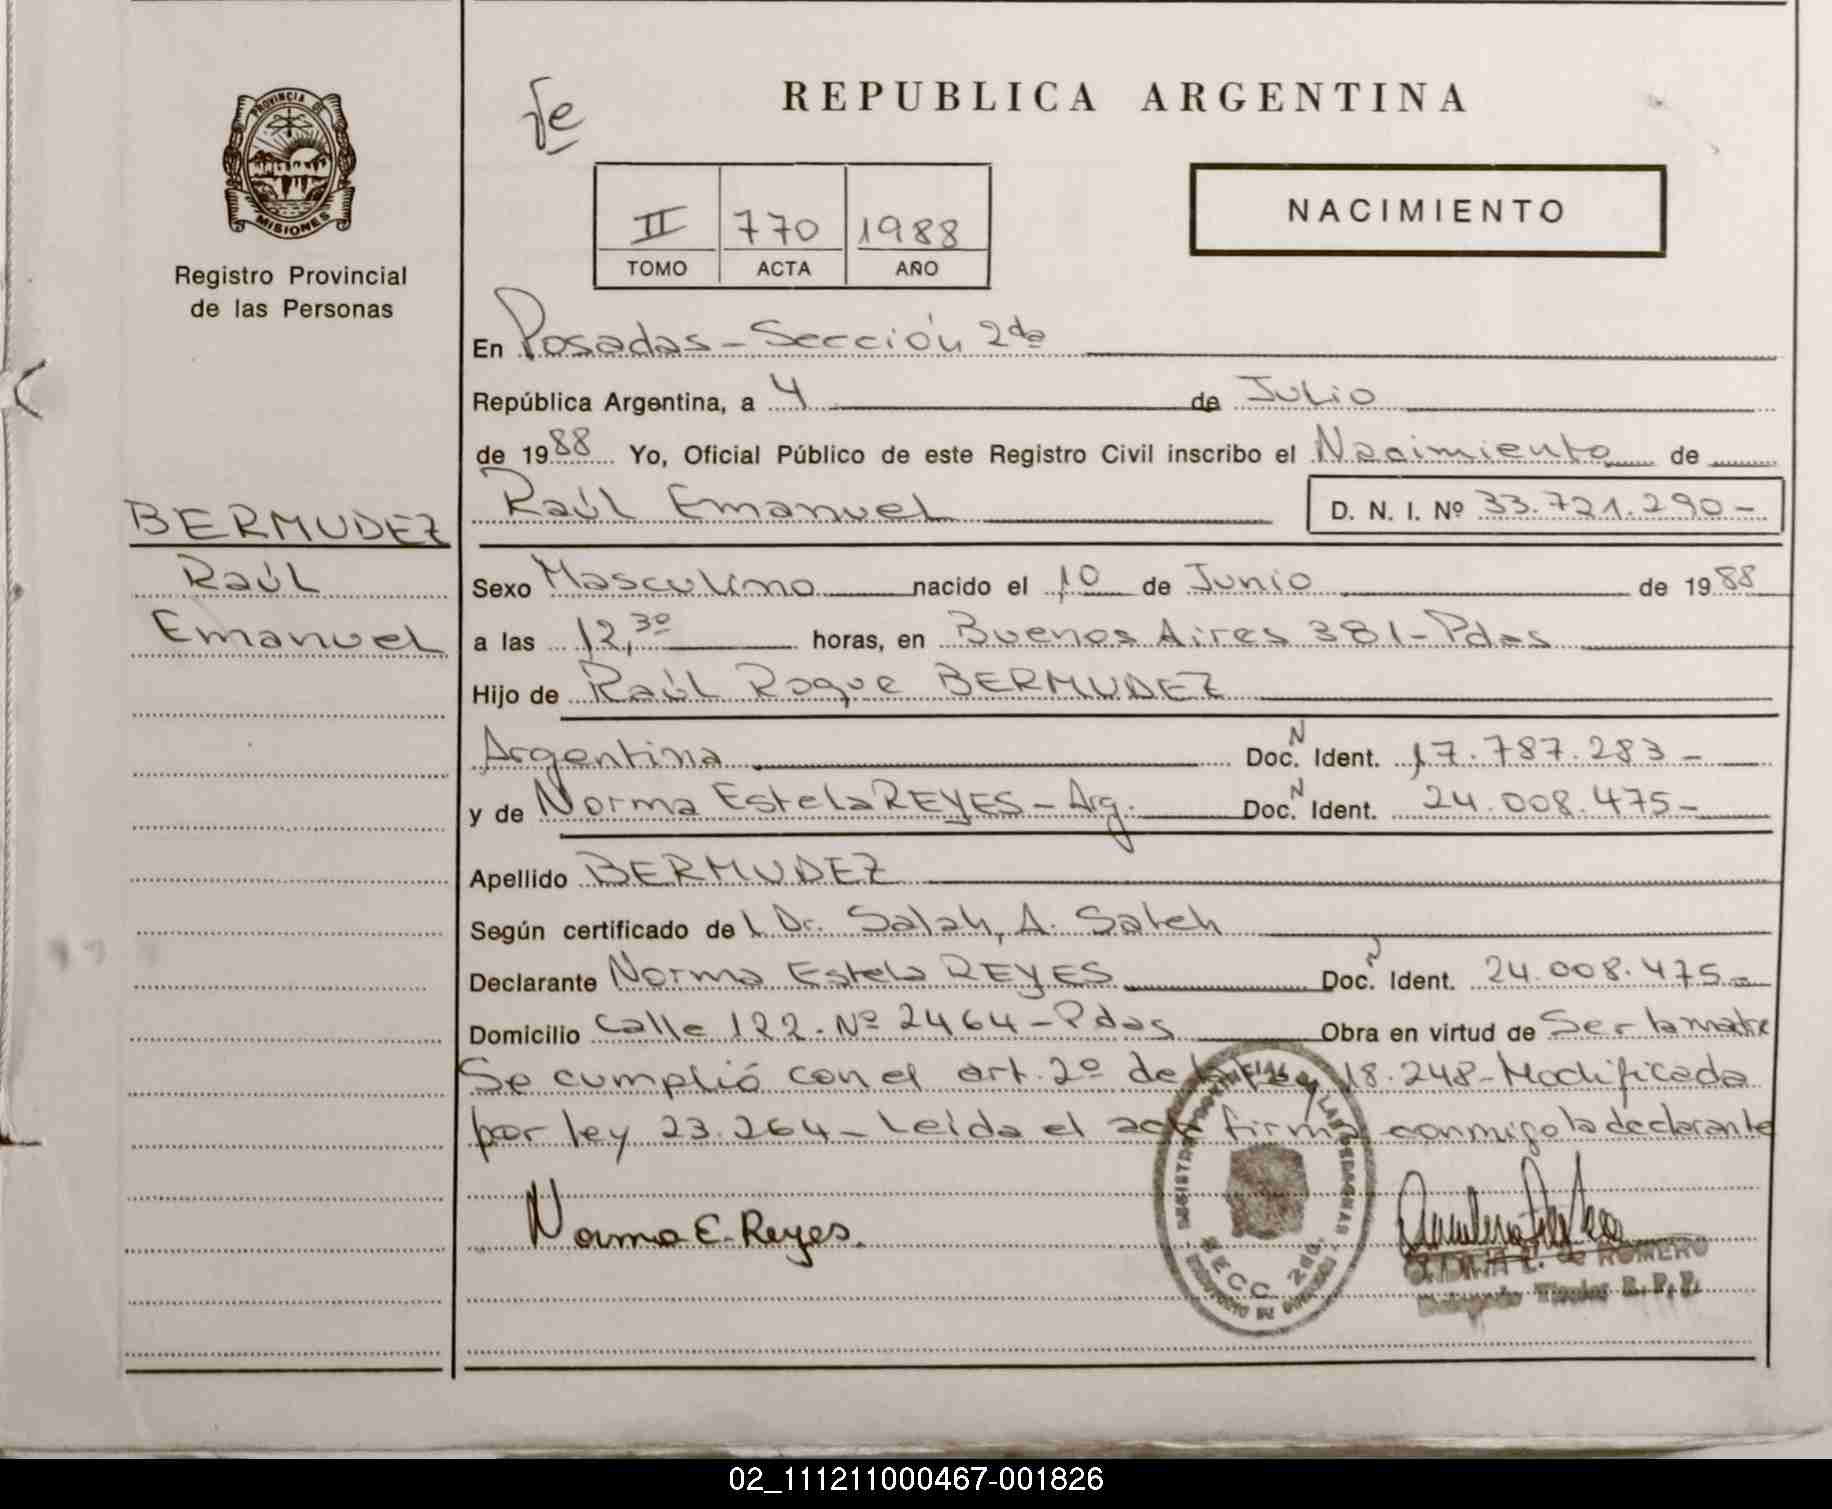 REPUBLICA ARGENTINA
PROVINCIA DE
MISIONES
Registro Provincial
de las Personas
II 770 1988
TOMO ACTA AÑO
NACIMIENTO
En Posadas - Sección 2da
República Argentina, a 4 de Julio
de 1988 Yo, Oficial Público de este Registro Civil inscribo el Nacimiento de
Raúl Emanuel D. N. I. Nº 33.721.290-
BERMUDEZ
Raúl
Emanuel
Sexo Masculino nacido el 10 de Junio de 1988
a las 12,30 horas, en Buenos Aires 381 - Pdas
Hijo de Raúl Roque BERMUDEZ
Argentina Doc. N Ident. 17.787.283-
y de Norma Estela REYES - Arg. Doc. N Ident. 24.008.475-
Apellido BERMUDEZ
Según certificado del Dr. Salah, A. Saleh
Declarante Norma Estela REYES Doc. N Ident. 24.008.475-
Domicilio Calle 122 - Nº 2464 - Pdas Obra en virtud de Ser la madre
Se cumplió con el art. 2º de la Ley 18.248 - Modificada
por ley 23.264 - Leída el acta firma conmigo la declarante
Norma E. Reyes.
SECC 2da.
de ROMERO
Titular R. P. P.
02_111211000467-001826